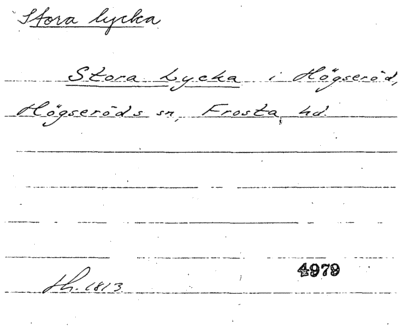 Stora lycka
Stora Lycka i Högseröd,
Högseröds sn, Frosta hd.
4979
Th. 1813